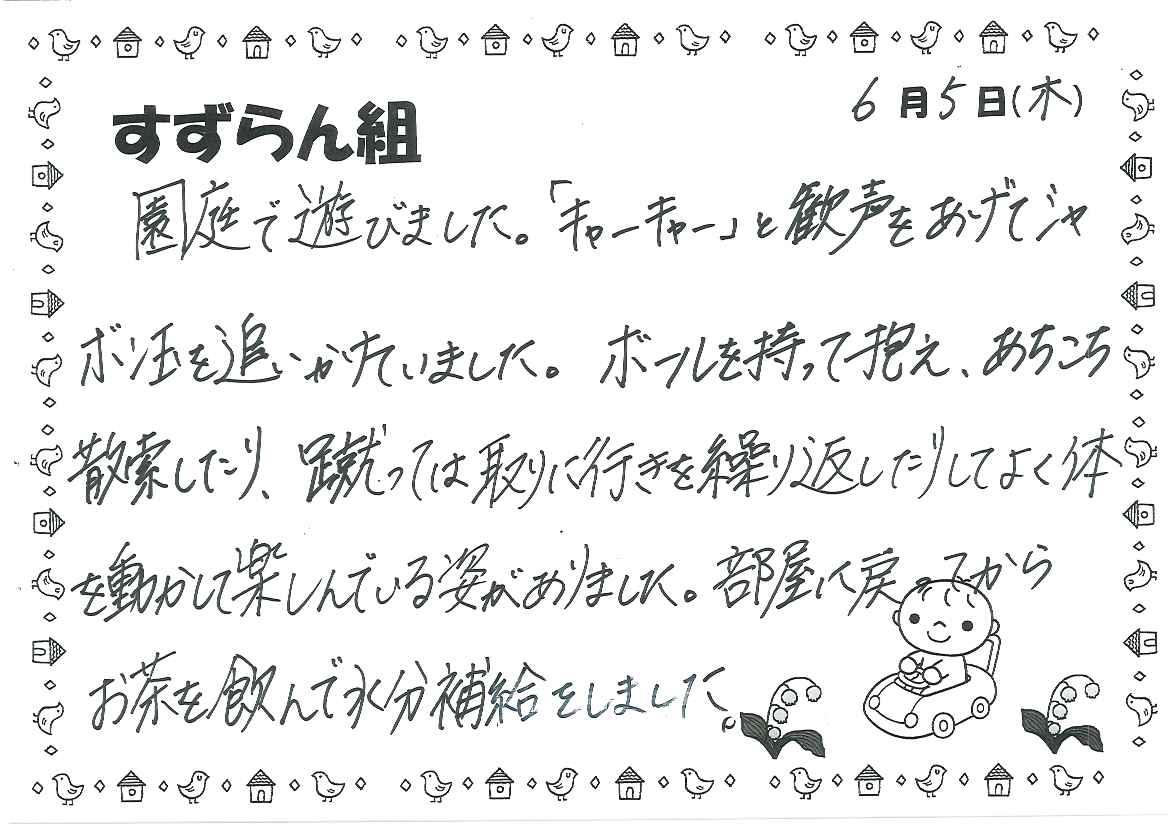 すずらん組
6月5日(木)
園庭で遊びました。「キャーキャー」と歓声をあげてジャ
ボン玉を追いかけていました。ボールを持って抱え、あちこち
散索したり、蹴っては取りに行きを繰り返したりしてよく体
を動かして楽しんでいる姿がありました。部屋に戻ってから
お茶を飲んで水分補給をしました。